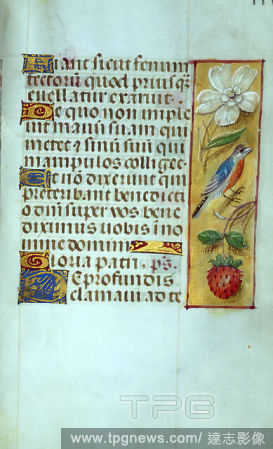 Fiant sicut fenum
tectorū quod priusq̄
euellatur exaruit.
De quo non imple
uit manū suam qui
metet & sinū suū qui
manipulos colliget.
Et nō dixerunt qui
preteribant benedicti
o dn̄i super vos bene
diximus uobis i no
mine domini
Gloria patri. ps.
De profundis
clamaui ad te
TPG
www.tpgnews.com/達志影像